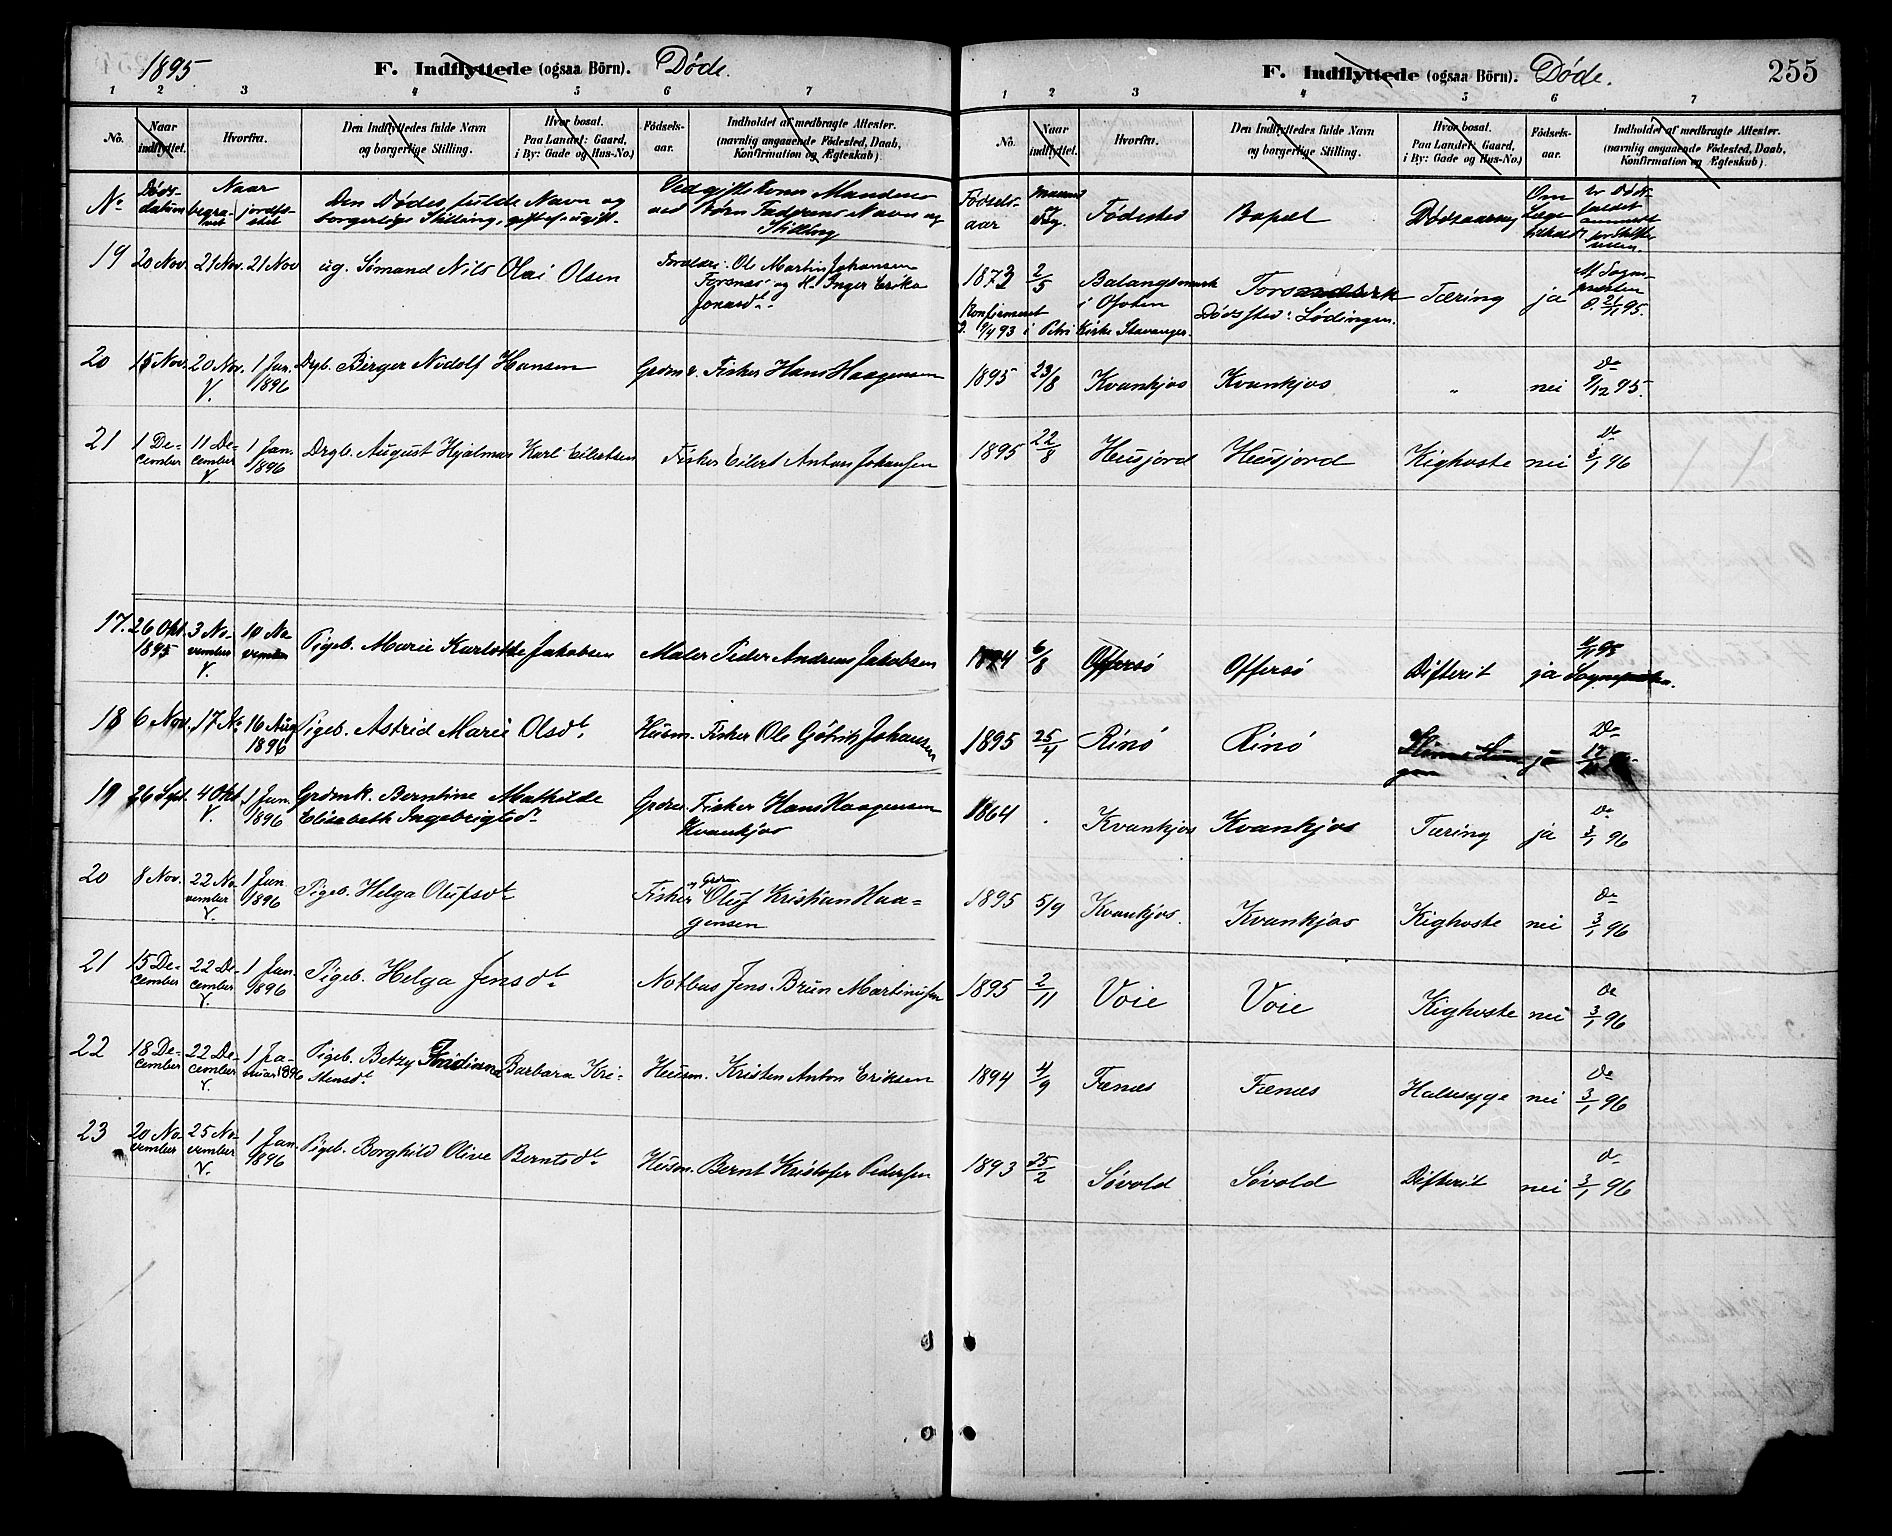 1895
F. Indflyttede (ogsaa Börn). Døde.
1 2 3 4 5 6 7
No. Naar indflyttet. Hvorfra. Den Indflyttedes fulde Navn og borgerlige Stilling. Hvor bosat. Paa Landet: Gaard, i By: Gade og Hus-No.) Födselsaar. Indholdet af medbragte Attester. (navnlig angaaende Födested, Daab, Konfirmation og Ægteskab)
No Dødsdatum Naar begravet jordfæstet Den Dødes fulde Navn og borgerlige Stilling, gift el. ugift. Ved gifte Koner Mandens ved Børn Faderens Navn og Stilling
19 20 Nov. 21 Nov. 21 Nov ug. Sømand Nils Olai Olsen Forældre: Ole Martin Johansen
Forsnæs og H. Inger Erika
Jonasdt.
20 15 Nov. 20 Nov. V. 1 Jan. 1896 Drgb. Birger Nidolf Hansen Grdm. Fisker Hans Haagensen
21 1 December 11 December V. 1 Jan. 1896 Drgb. August Hjalmar Karl Eilertsen Fisker Eilert Anton Johansen
17. 26 Okt. 1895 3 November V. 10 November Pigeb. Marie Karlotte Jakobsen Maler Peder Andreas Jakobsen
18 6 Nov. 17 No. 16 Aug 1896 Pigeb. Astrid Marie Olsdt. Husm. Fisker Ole Gøtrik Johansen
19 26 Sept. 4 Okt. V. 1 Jan. 1896 Grdmk. Berntine Mathilde
Elisabeth Ingebrigtsd. Grdm. Fisker Hans Haagensen
Kvankjos
20 8 Nov. 22 November V. 1 Jan 1896 Pigeb. Helga Olufsdt Fisker og Grdm Oluf Kristian Haagensen
21 15 December 22 December V. 1 Jan. 1896 Pigeb. Helga Jensdt. Notbas Jens Brun Martinussen
22 18 December 22 December V. 1 Januar 1896 Pigeb. Betzy Barbara Kristensdt. Husm. Kristen Anton Eriksen
23 20 November 25 November V. 1 Jan. 1896 Pigeb. Borghild Olive Berntsdt. Husm. Bernt Kristofer Pedersen
F. Indflyttede (ogsaa Börn). Døde. 255
1 2 3 4 5 6 7
No. Naar indflyttet. Hvorfra. Den Indflyttedes fulde Navn og borgerlige Stilling. Hvor bosat. Paa Landet: Gaard, i By: Gade og Hus-No.) Födselsaar. Indholdet af medbragte Attester. (navnlig angaaende Födested, Daab, Konfirmation og Ægteskab)
Fødselsaar Maaned og Dag. Fødested Bopæl Dødsaarsag Om Læge tilkaldt Er Dødsfaldet anmeldt for Skifteretten.
1873 2/5 Balangsmark i Ofoten Tæring ja Af Sognepresten
Konfirmeret 93 i Petri Kirke Stavanger. Dødssted: Lødingen.
1895 23/8 Kvankjos Kvankjos " nei Do 9/12 95.
1895 22/8 Husjord Husjord Kighoste nei Do 3/1 96
6/8 Offersø Offersø Difterit ja
1895 25/4 Rinø Rinø ja Do
1864 . Kvankjos Kvankjos Tæring ja Do 3/1 96
1895 5/9 Kvankjos. Kvankjos Kighoste nei Do 3/1 96
1895 2/11 Voie Voie Kighoste nei Do 3/1 96
1894 4/9 Tænæs Tænæs Halssyge nei Do 3/1 96
1893 25/2 Søvold Søvold Difterit nei Do 3/1 96